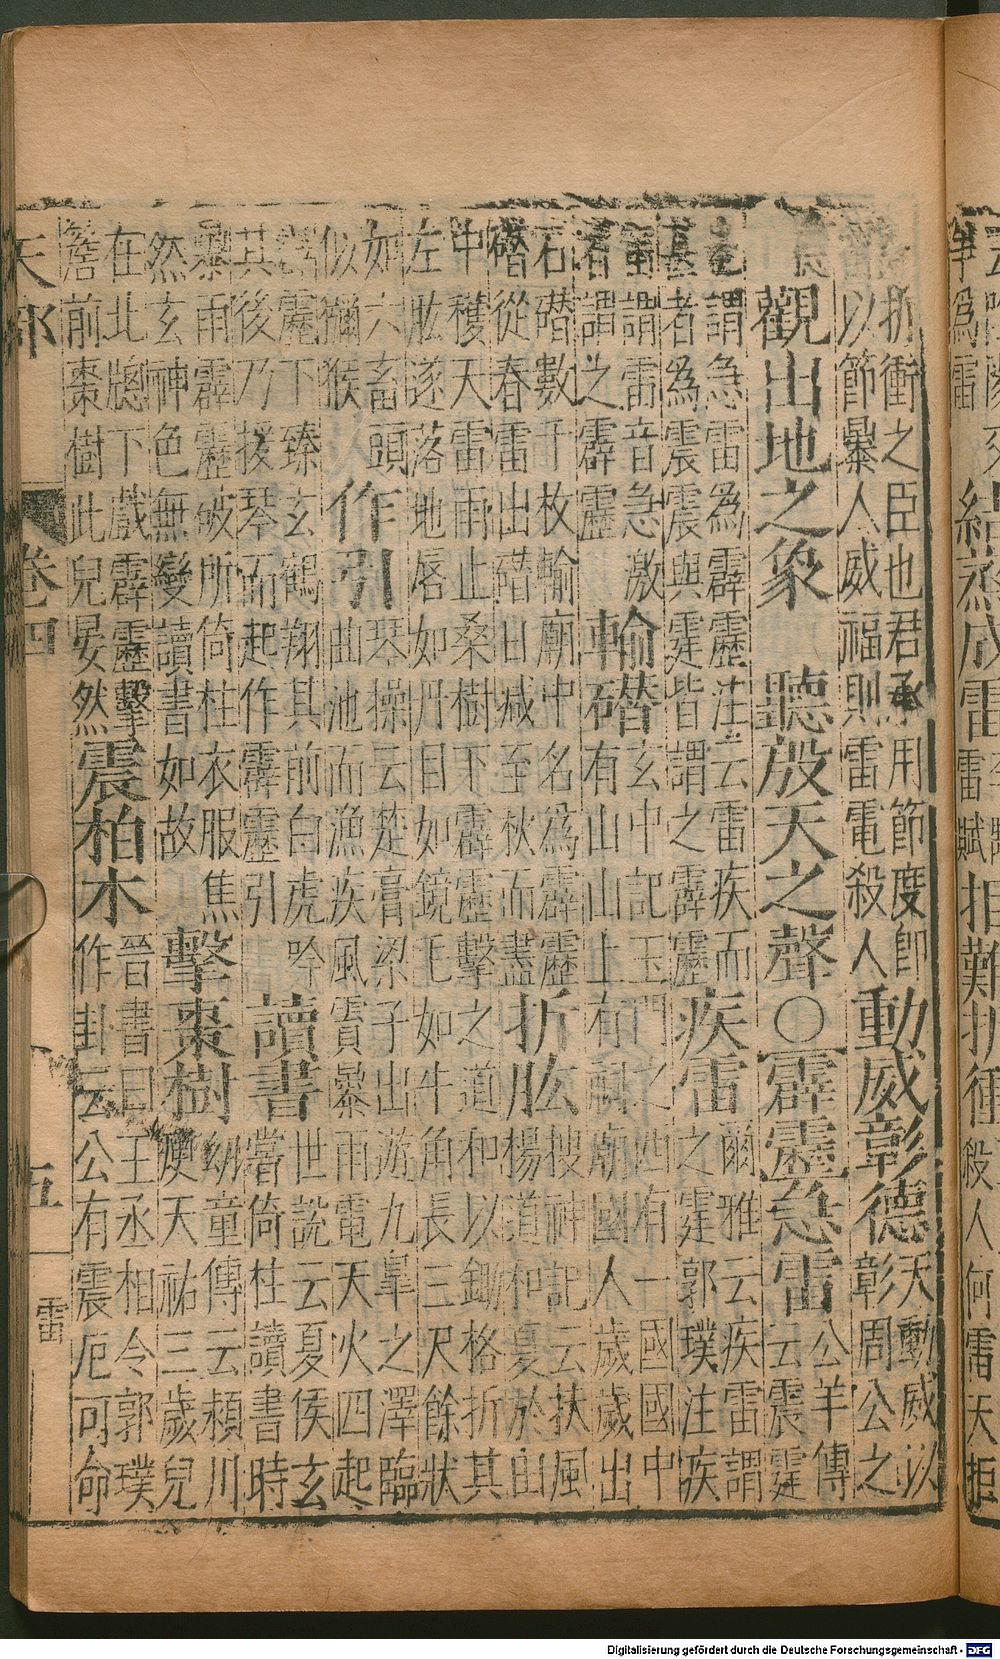 結蒸成雷
雷賦
拒難折衝
折衝之臣也君承用節度即
以節暴人威福則雷電殺人
動威彰德
天動威以
彰周公之
德
觀出地之象 聽殷天之聲○霹靂急雷
公羊傳
云震霆
者謂急雷為霹靂注云雷疾而
甚者為震震與霆皆謂之霹靂
疾雷
爾雅云疾雷謂
之霆郭璞注疾
雷謂雷音急激
者謂之霹靂
輸𥖎
玄中記玉門之西有一國國中
有山山上有祠廟國人歲歲出
石𥖎數千枚輸廟中名為霹靂
𥖎從春雷出𥖎日减至秋而盡
折肱
搜神記云扶風
楊道和夏於山
中穫天雷雨止桑樹下霹靂擊之道和以鋤格折其
左肱遂落地唇如丹目如鏡毛如牛角長三尺餘狀
如六畜頭
似獼猴
作引
琴操云楚膏梁子出遊九臯之澤臨
曲池而漁疾風霣暴雨電天火四起
霹靂下臻玄鶴翔其前白虎吟
其後乃援琴而起作霹靂引
讀書
世說云夏侯玄
嘗倚柱讀書時
暴雨霹靂破所倚柱衣服焦
然玄神色無變讀書如故
擊棗樹
幼童傳云頴川
庾天祐三歲兒
在北牕下戲霹靂擊
簷前棗樹此兒晏然
震柏木
晉書曰王丞相令郭璞
作卦云公有震厄可命
天部 卷四 五 雷
Digitalisierung gefördert durch die Deutsche Forschungsgemeinschaft - DFG